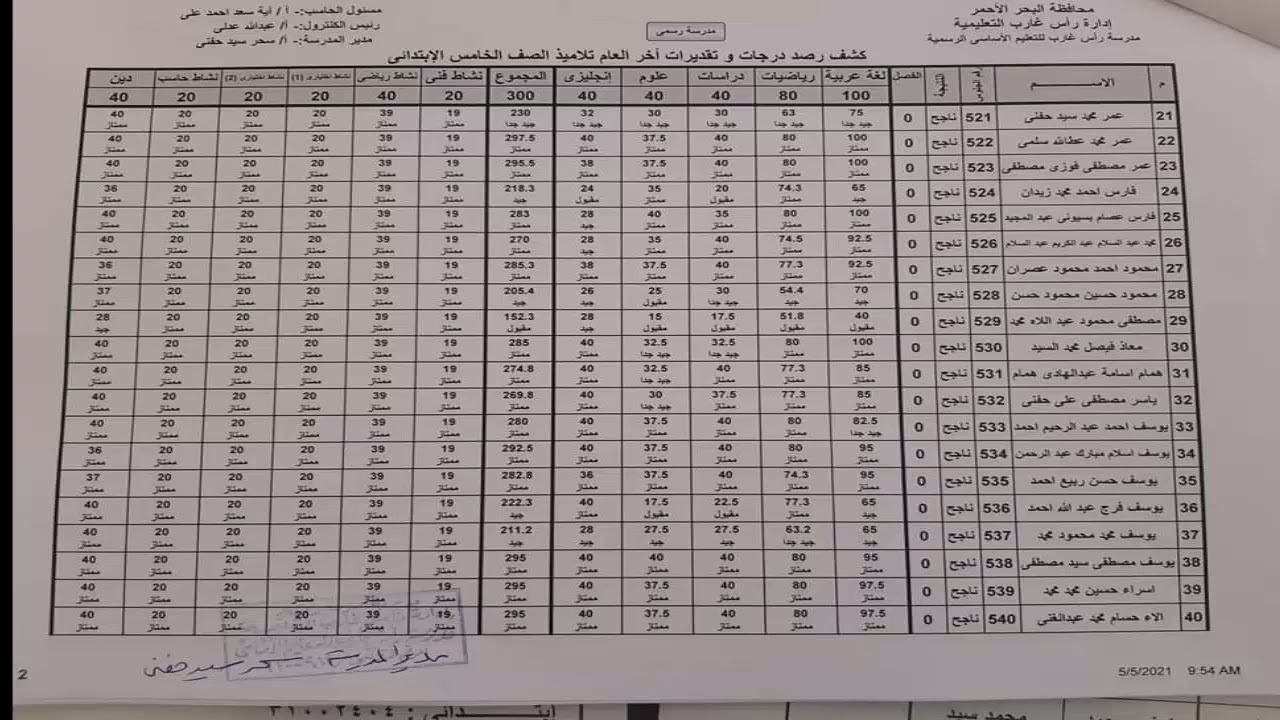 محافظة البحر الأحمر
إدارة رأس غارب التعليمية
مدرسة رأس غارب للتعليم الأساسى الرسمية
مدرسة رسمى
مسئول الحاسب:- أ / آية سعد احمد على
رئيس الكنترول:- أ/ عبدالله عدلى
مدير المدرسة:- أ/ سحر سيد حفنى
كشف رصد درجات و تقديرات أخر العام تلاميذ الصف الخامس الإبتدائى
م الاســـــم رقم الجلوس النتيجة الفصل لغة عربية رياضيات دراسات علوم إنجليزى المجموع نشاط فنى نشاط رياضى نشاط اختيارى (1) نشاط اختيارى (2) نشاط حاسب دين
100 80 40 40 40 300 20 40 20 20 20 40
21 عمر محمد سيد حفنى 521 ناجح 0 75 63 30 30 32 230 19 39 20 20 20 40
جيد جدا جيد جدا جيد جدا جيد جدا جيد جدا جيد جدا ممتاز ممتاز ممتاز ممتاز ممتاز ممتاز
22 عمر محمد عطالله سلمى 522 ناجح 0 100 80 40 37.5 40 297.5 19 39 20 20 20 40
ممتاز ممتاز ممتاز ممتاز ممتاز ممتاز ممتاز ممتاز ممتاز ممتاز ممتاز ممتاز
23 عمر مصطفى فوزى مصطفى 523 ناجح 0 100 80 40 37.5 38 295.5 19 39 20 20 20 40
ممتاز ممتاز ممتاز ممتاز ممتاز ممتاز ممتاز ممتاز ممتاز ممتاز ممتاز ممتاز
24 فارس احمد محمد زيدان 524 ناجح 0 65 74.3 20 35 24 218.3 19 39 20 20 20 36
جيد ممتاز مقبول ممتاز مقبول جيد ممتاز ممتاز ممتاز ممتاز ممتاز ممتاز
25 فارس عصام بسيونى عبد المجيد 525 ناجح 0 100 80 35 40 28 283 19 39 20 20 20 40
ممتاز ممتاز ممتاز ممتاز جيد ممتاز ممتاز ممتاز ممتاز ممتاز ممتاز ممتاز
26 محمد عبد السلام عبد الكريم عبد السلام 526 ناجح 0 92.5 74.5 40 35 28 270 19 39 20 20 20 40
ممتاز ممتاز ممتاز ممتاز جيد ممتاز ممتاز ممتاز ممتاز ممتاز ممتاز ممتاز
27 محمود احمد محمود عصران 527 ناجح 0 92.5 77.3 40 37.5 38 285.3 19 39 20 20 20 36
ممتاز ممتاز ممتاز ممتاز ممتاز ممتاز ممتاز ممتاز ممتاز ممتاز ممتاز ممتاز
28 محمود حسين محمود حسن 528 ناجح 0 70 54.4 30 25 26 205.4 19 39 20 20 20 37
جيد جيد جيد جدا مقبول جيد جيد ممتاز ممتاز ممتاز ممتاز ممتاز ممتاز
29 مصطفى محمود عبد اللاه محمد 529 ناجح 0 40 51.8 17.5 15 28 152.3 19 39 20 20 20 28
مقبول جيد مقبول مقبول جيد مقبول ممتاز ممتاز ممتاز ممتاز ممتاز جيد
30 معاذ فيصل محمد السيد 530 ناجح 0 100 80 32.5 32.5 40 285 19 39 20 20 20 40
ممتاز ممتاز جيد جدا جيد جدا ممتاز ممتاز ممتاز ممتاز ممتاز ممتاز ممتاز ممتاز
31 همام اسامة عبدالهادى همام 531 ناجح 0 85 77.3 40 32.5 40 274.8 19 39 20 20 20 40
ممتاز ممتاز ممتاز جيد جدا ممتاز ممتاز ممتاز ممتاز ممتاز ممتاز ممتاز ممتاز
32 ياسر مصطفى على حفنى 532 ناجح 0 85 77.3 37.5 30 40 269.8 19 39 20 20 20 40
ممتاز ممتاز ممتاز جيد جدا ممتاز ممتاز ممتاز ممتاز ممتاز ممتاز ممتاز ممتاز
33 يوسف احمد عبد الرحيم احمد 533 ناجح 0 82.5 80 40 37.5 40 280 19 39 20 20 20 40
جيد جدا ممتاز ممتاز ممتاز ممتاز ممتاز ممتاز ممتاز ممتاز ممتاز ممتاز ممتاز
34 يوسف اسلام مبارك عبد الرحمن 534 ناجح 0 95 80 40 37.5 40 292.5 19 39 20 20 20 36
ممتاز ممتاز ممتاز ممتاز ممتاز ممتاز ممتاز ممتاز ممتاز ممتاز ممتاز ممتاز
35 يوسف حسن ربيع احمد 535 ناجح 0 95 74.3 40 37.5 36 282.8 19 39 20 20 20 37
ممتاز ممتاز ممتاز ممتاز ممتاز ممتاز ممتاز ممتاز ممتاز ممتاز ممتاز ممتاز
36 يوسف فرج عبد الله احمد 536 ناجح 0 65 77.3 22.5 17.5 40 222.3 19 39 20 20 20 40
جيد ممتاز مقبول مقبول ممتاز جيد ممتاز ممتاز ممتاز ممتاز ممتاز ممتاز
37 يوسف محمد محمود محمد 537 ناجح 0 65 63.2 27.5 27.5 28 211.2 19 39 20 20 20 40
جيد جيد جدا جيد جيد جيد جيد ممتاز ممتاز ممتاز ممتاز ممتاز ممتاز
38 يوسف مصطفى سيد مصطفى 538 ناجح 0 95 80 40 40 40 295 19 39 20 20 20 40
ممتاز ممتاز ممتاز ممتاز ممتاز ممتاز ممتاز ممتاز ممتاز ممتاز ممتاز ممتاز
39 اسراء حسين محمد محمد 539 ناجح 0 97.5 80 40 37.5 40 295 19 39 20 20 20 40
ممتاز ممتاز ممتاز ممتاز ممتاز ممتاز ممتاز ممتاز ممتاز ممتاز ممتاز ممتاز
40 الاء حسام محمد عبدالغنى 540 ناجح 0 97.5 80 40 37.5 40 295 19 39 20 20 20 40
ممتاز ممتاز ممتاز ممتاز ممتاز ممتاز ممتاز ممتاز ممتاز ممتاز ممتاز ممتاز
مدير المدرسة سحر سيد حفنى
5/5/2021 9:54 AM
2
محمد سيد